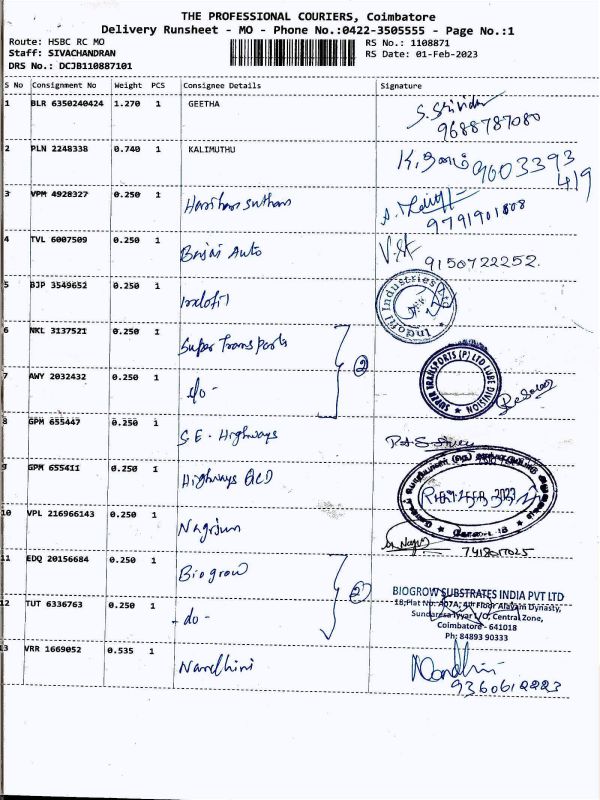 THE PROFESSIONAL COURIERS, Coimbatore
Delivery Runsheet - MO - Phone No.:0422-3505555 - Page No.:1
Route: HSBC RC MO
RS No.: 1108871
Staff: SIVACHANDRAN
RS Date: 01-Feb-2023
DRS No.: DCJB110887101
S No Consignment No Weight PCS Consignee Details Signature
1 BLR 6350240424 1.270 1 GEETHA
9688787080
2 PLN 2248338 0.740 1 KALIMUTHU
9003393
419
3 VPM 4928327 0.250 1 Hariharasuthan
9791901808
4 TVL 6007509 0.250 1 Bajaj Auto
9150722252.
5 BJP 3549652 0.250 1 Indofil
Indofil Industries Ltd
6 NKL 3137521 0.250 1 Super Transports
2
SUPER TRANSPORTS (P) LTD LUBE DIVISION
7 AWY 2032432 0.250 1 do -
8 GPM 655447 0.250 1 S.E - Highways
9 GPM 655411 0.250 1 Highways
10 VPL 216966143 0.250 1 Nagrjun
11 EDQ 20156684 0.250 1 Biogrow
2
BIOGROW SUBSTRATES INDIA PVT LTD
18, Flat No. A07A, 4th Floor Alayam Dynasty,
Sundaresa Iyyar L/O, Central Zone,
Coimbatore - 641018
Ph: 84893 90333
12 TUT 6336763 0.250 1 - do -
13 VRR 1669052 0.535 1 Nandhini
Nandhini
9360612223